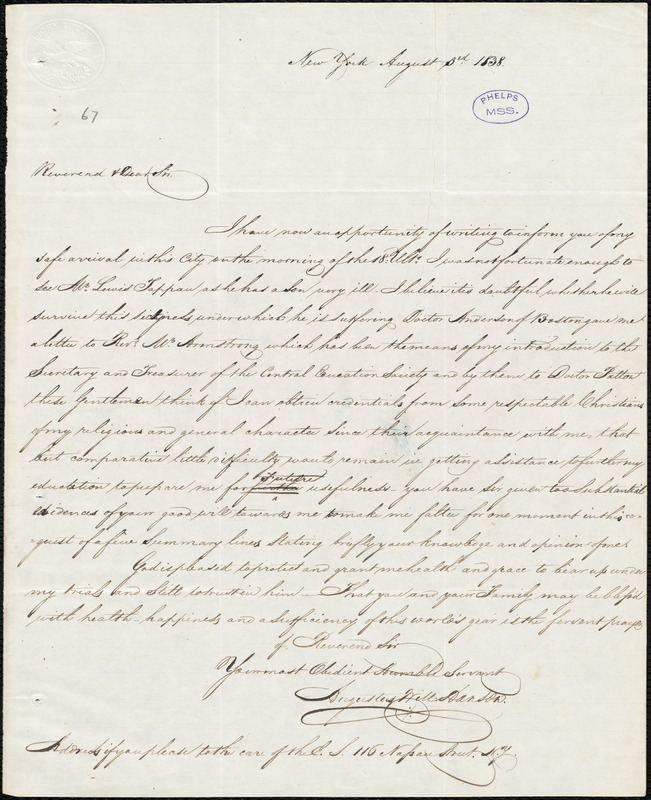 New York August 3rd 1838.
PHELPS
MSS.
67
Reverend & Dear Sir,
I have now an opportunity of writing to inform you of my
safe arrival in this City on the morning of the 18. Ulto. I was not fortunate enough to
see Mr. Lewis Tappan as he has a son very ill. I believe it is doubtful whether he will
survive this sickness under which he is suffering Doctor Anderson of Boston gave me
a letter to Revd. Mr. Armstrong which has been the means of my introduction to the
Secretary and Treasurer of the Central Education Society and by them to Doctor Patton
these Gentlemen think if I can obtain credentials from some respectable Christians
of my religious and general character since their acquaintance with me, that
but comparative little difficulty would remain in getting assistance to further my
education to prepare me for future usefulness - you have Sir given too substantial
evidences of your good will towards me to make me falter for one moment in this re-
quest of a few summary lines stating briefly your knowledge and opinion of me
God is pleased to protect and grant me health and grace to bear up under
my trials and still to trust in him - That you and your Family may be bless'd
with health - happiness and a sufficiency of this world's gear is the fervent prayer
of Reverend Sir
Your most Obedient Humble Servant
Augustus Hanson.
Address if you please to the care of the E. S. 116 Nassau Street. N.Y.